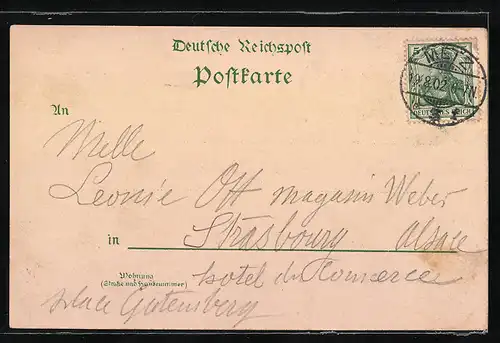 Deutsche Reichspost
Postkarte
METZ
19.8.02
DEUTSCHES REICH
An
Melle
Leonie Ott magasin Weber
in Strasbourg Alsace
Wohnung
(Straße und Hausnummer)
hotel du Comerce
place Gutemberg